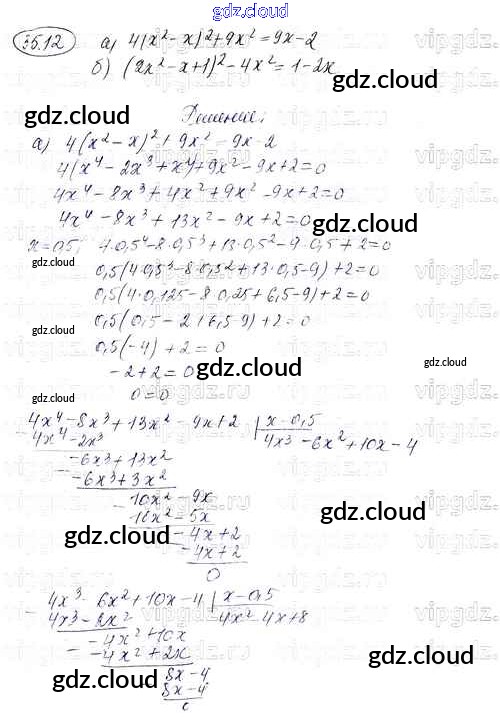 gdz.cloud
35.12 a) 4(x² - x)² + 9x² = 9x - 2
б) (2x² - x + 1)² - 4x² = 1 - 2x
gdz.cloud gdz.cloud
Решение:
а) 4(x² - x)² + 9x² - 9x - 2
4(x⁴ - 2x³ + x²) + 9x² - 9x + 2 = 0
4x⁴ - 8x³ + 4x² + 9x² - 9x + 2 = 0
4x⁴ - 8x³ + 13x² - 9x + 2 = 0
gdz.cloud gdz.cloud
x = 0,5, 4·0,5⁴ - 8·0,5³ + 13·0,5² - 9·0,5 + 2 = 0
gdz.cloud
0,5(4·0,5³ - 8·0,5² + 13·0,5 - 9) + 2 = 0
0,5(4·0,125 - 8·0,25 + 6,5 - 9) + 2 = 0
0,5(0,5 - 2 + 6,5 - 9) + 2 = 0
gdz.cloud
0,5(-4) + 2 = 0
-2 + 2 = 0
gdz.cloud gdz.cloud
0 = 0
4x⁴ - 8x³ + 13x² - 9x + 2 | x - 0,5
4x⁴ - 2x³ 4x³ - 6x² + 10x - 4
gdz.cloud
-6x³ + 13x²
-6x³ + 3x²
10x² - 9x
10x² - 5x
gdz.cloud
-4x + 2
gdz.cloud
-4x + 2
0
4x³ - 6x² + 10x - 4 | x - 0,5
4x³ - 2x² 4x² - 4x + 8
-4x² + 10x
-4x² + 2x
gdz.cloud gdz.cloud
8x - 4
8x - 4
0